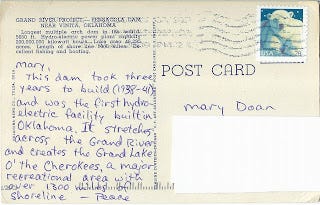 GRAND RIVER PROJECT - PENSACOLA DAM
NEAR VINITA, OKLAHOMA
Longest multiple arch dam in the world,
5680 ft. Hydroelectric power plant supply
200,000,000 kilowatt hours. Lake over
acres. Length of shore line
cellent fishing and boating.
Mary,
This dam took three
years to build (1938-41)
and was the first hydro-
electric facility built in
Oklahoma. It stretches
across the Grand River
and creates the Grand Lake
O' the Cherokees, a major
recreational area with
over 1300 miles of
shoreline - Peace
POST CARD
Mary Doan